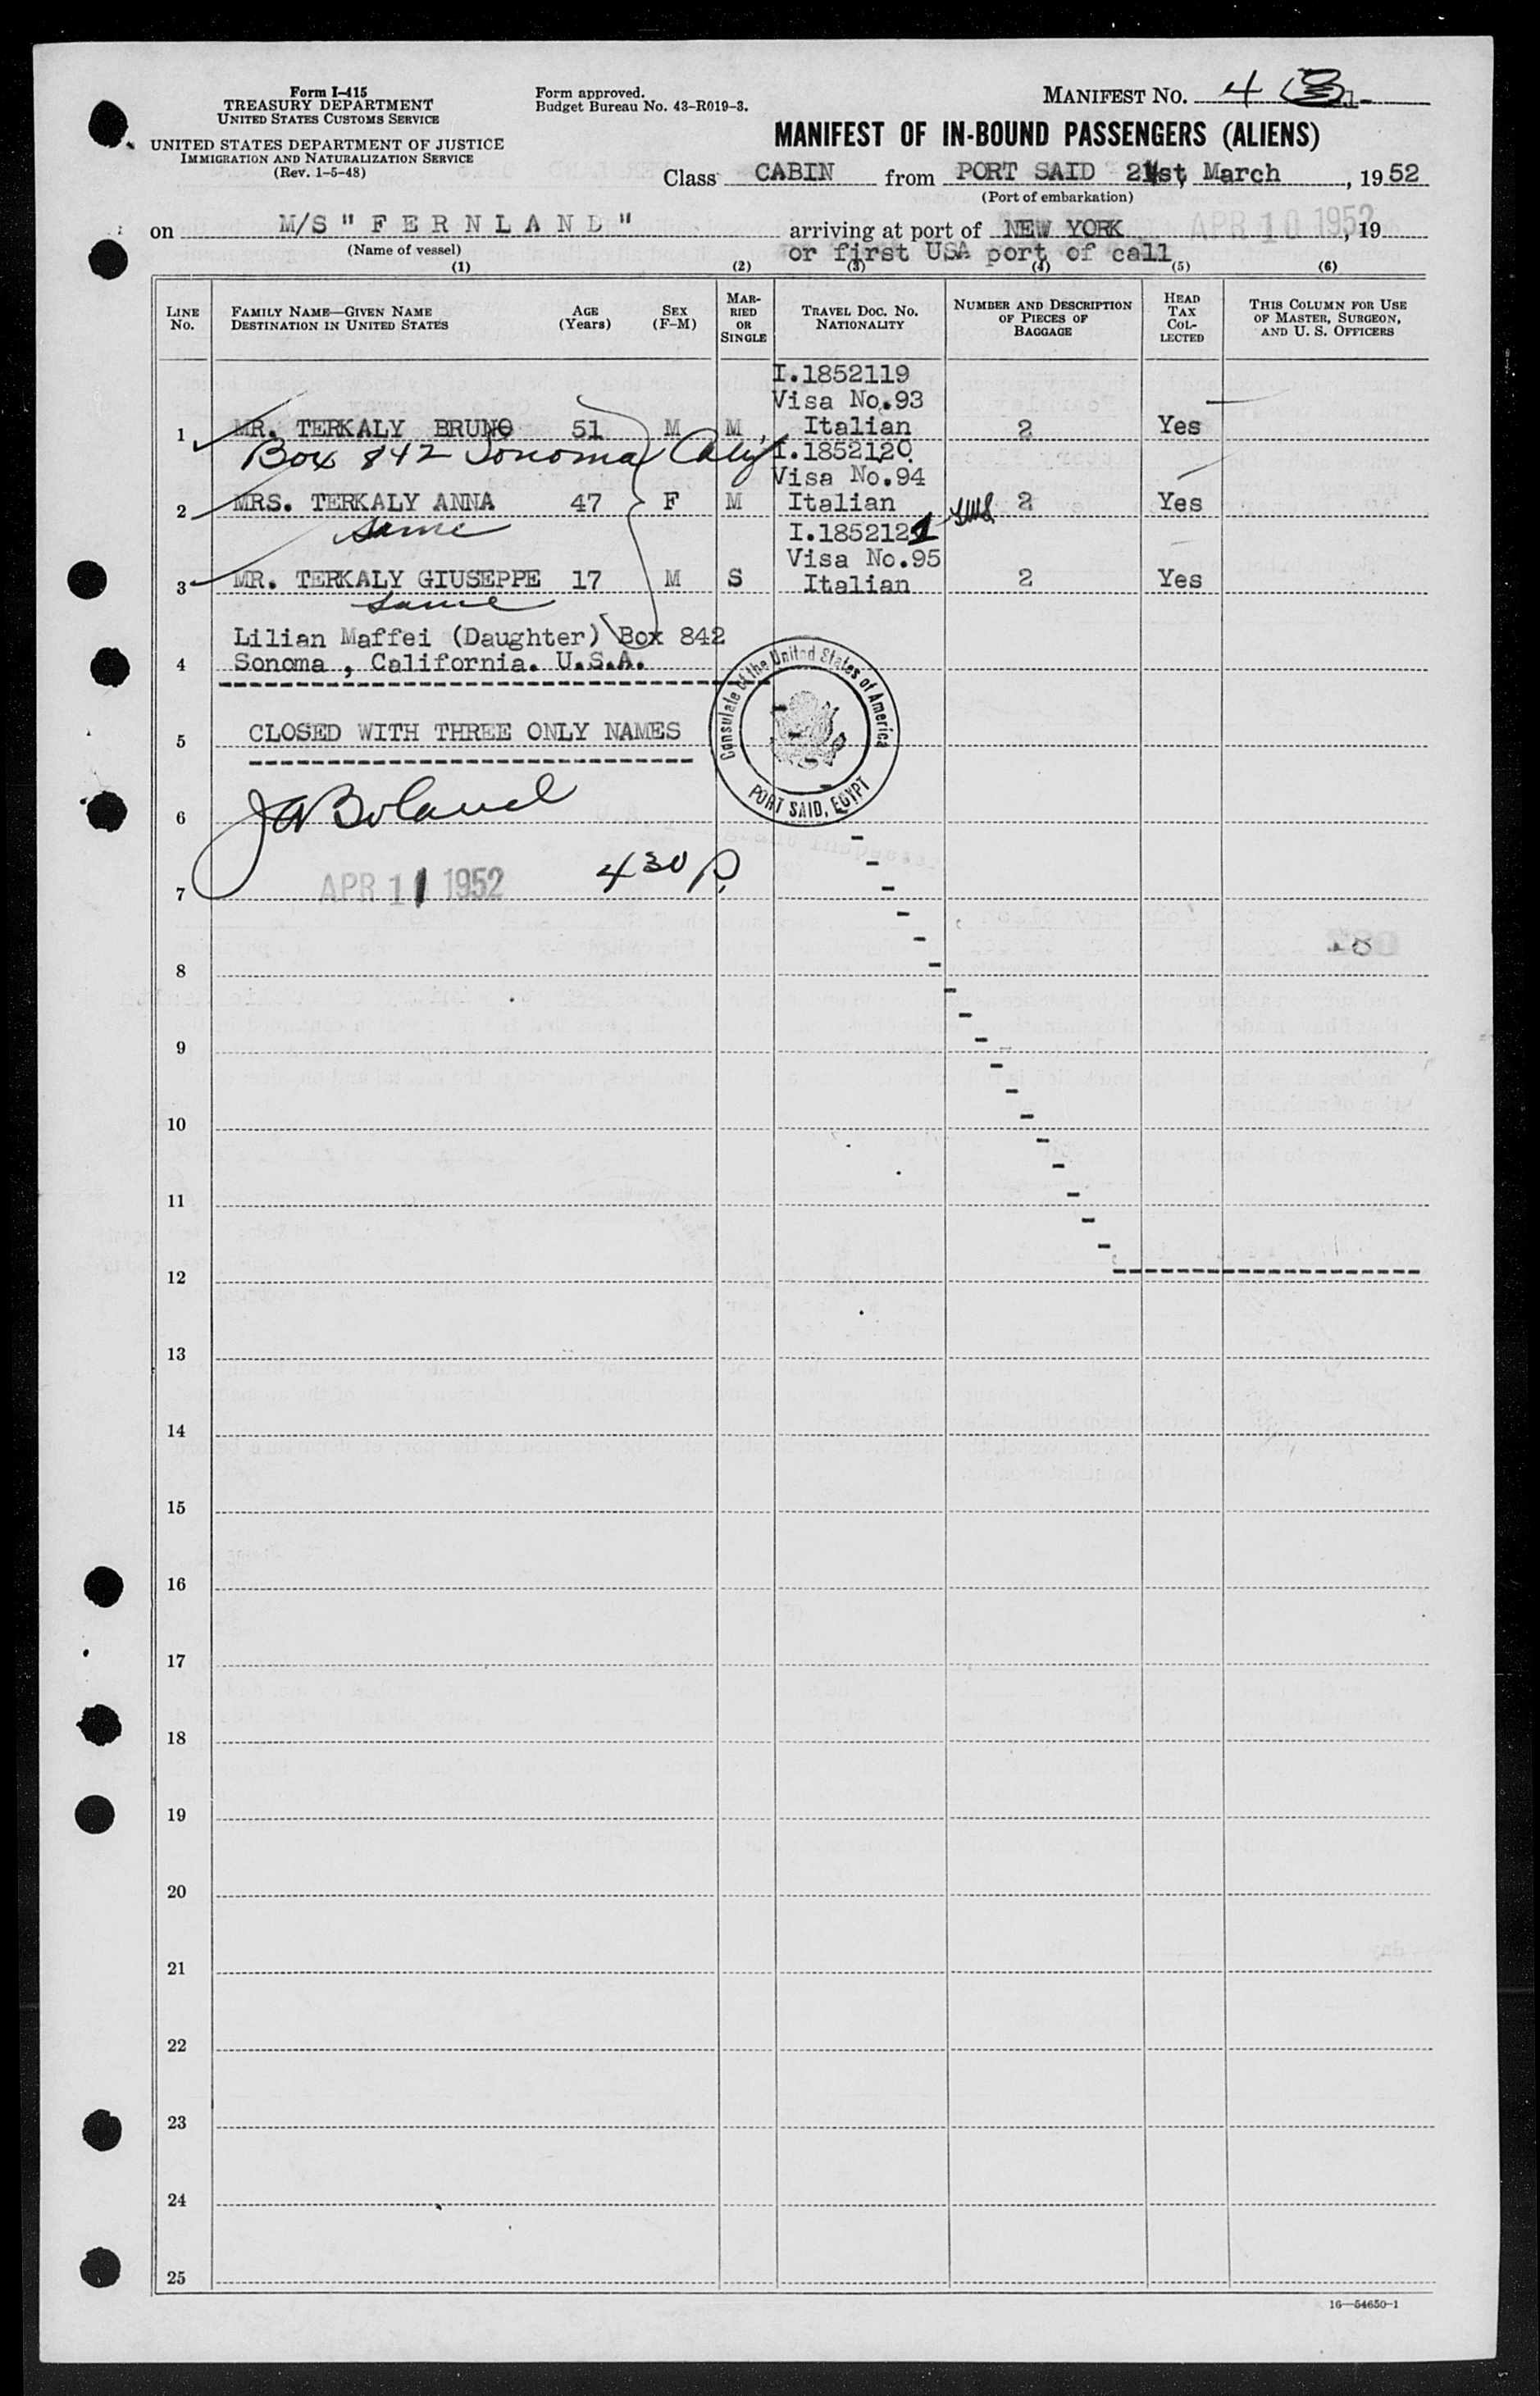 Form I-415
TREASURY DEPARTMENT
UNITED STATES CUSTOMS SERVICE
UNITED STATES DEPARTMENT OF JUSTICE
IMMIGRATION AND NATURALIZATION SERVICE
(Rev. 1-5-48)
Form approved.
Budget Bureau No. 43-R019-3.
MANIFEST NO. 4
MANIFEST OF IN-BOUND PASSENGERS (ALIENS)
Class CABIN from PORT SAID 21st March, 1952
(Port of embarkation)
on M/S "FERNLAND" arriving at port of NEW YORK APR 10 1952, 19
(Name of vessel) or first USA port of call
(1) (2) (3) (4) (5) (6)
LINE NO.
FAMILY NAME—GIVEN NAME
DESTINATION IN UNITED STATES
AGE (Years)
SEX (F-M)
MARRIED OR SINGLE
TRAVEL DOC. NO. NATIONALITY
NUMBER AND DESCRIPTION OF PIECES OF BAGGAGE
HEAD TAX COLLECTED
THIS COLUMN FOR USE OF MASTER, SURGEON, AND U. S. OFFICERS
I.1852119
Visa No.93
1 MR. TERKALY BRUNO 51 M M Italian 2 Yes
Box 842 Sonoma Calif I.1852120
Visa No.94
2 MRS. TERKALY ANNA 47 F M Italian 2 Yes
same I.1852121
Visa No.95
3 MR. TERKALY GIUSEPPE 17 M S Italian 2 Yes
same
Lilian Maffei (Daughter) Box 842
4 Sonoma, California. U.S.A.
Consulate of the United States of America
PORT SAID, EGYPT
5 CLOSED WITH THREE ONLY NAMES
6 JABoland
7 APR 11 1952 430 P.
8
9
10
11
12
13
14
15
16
17
18
19
20
21
22
23
24
25
16—54650-1